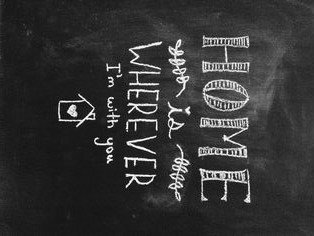 HOME
is
WHEREVER
I'm with you